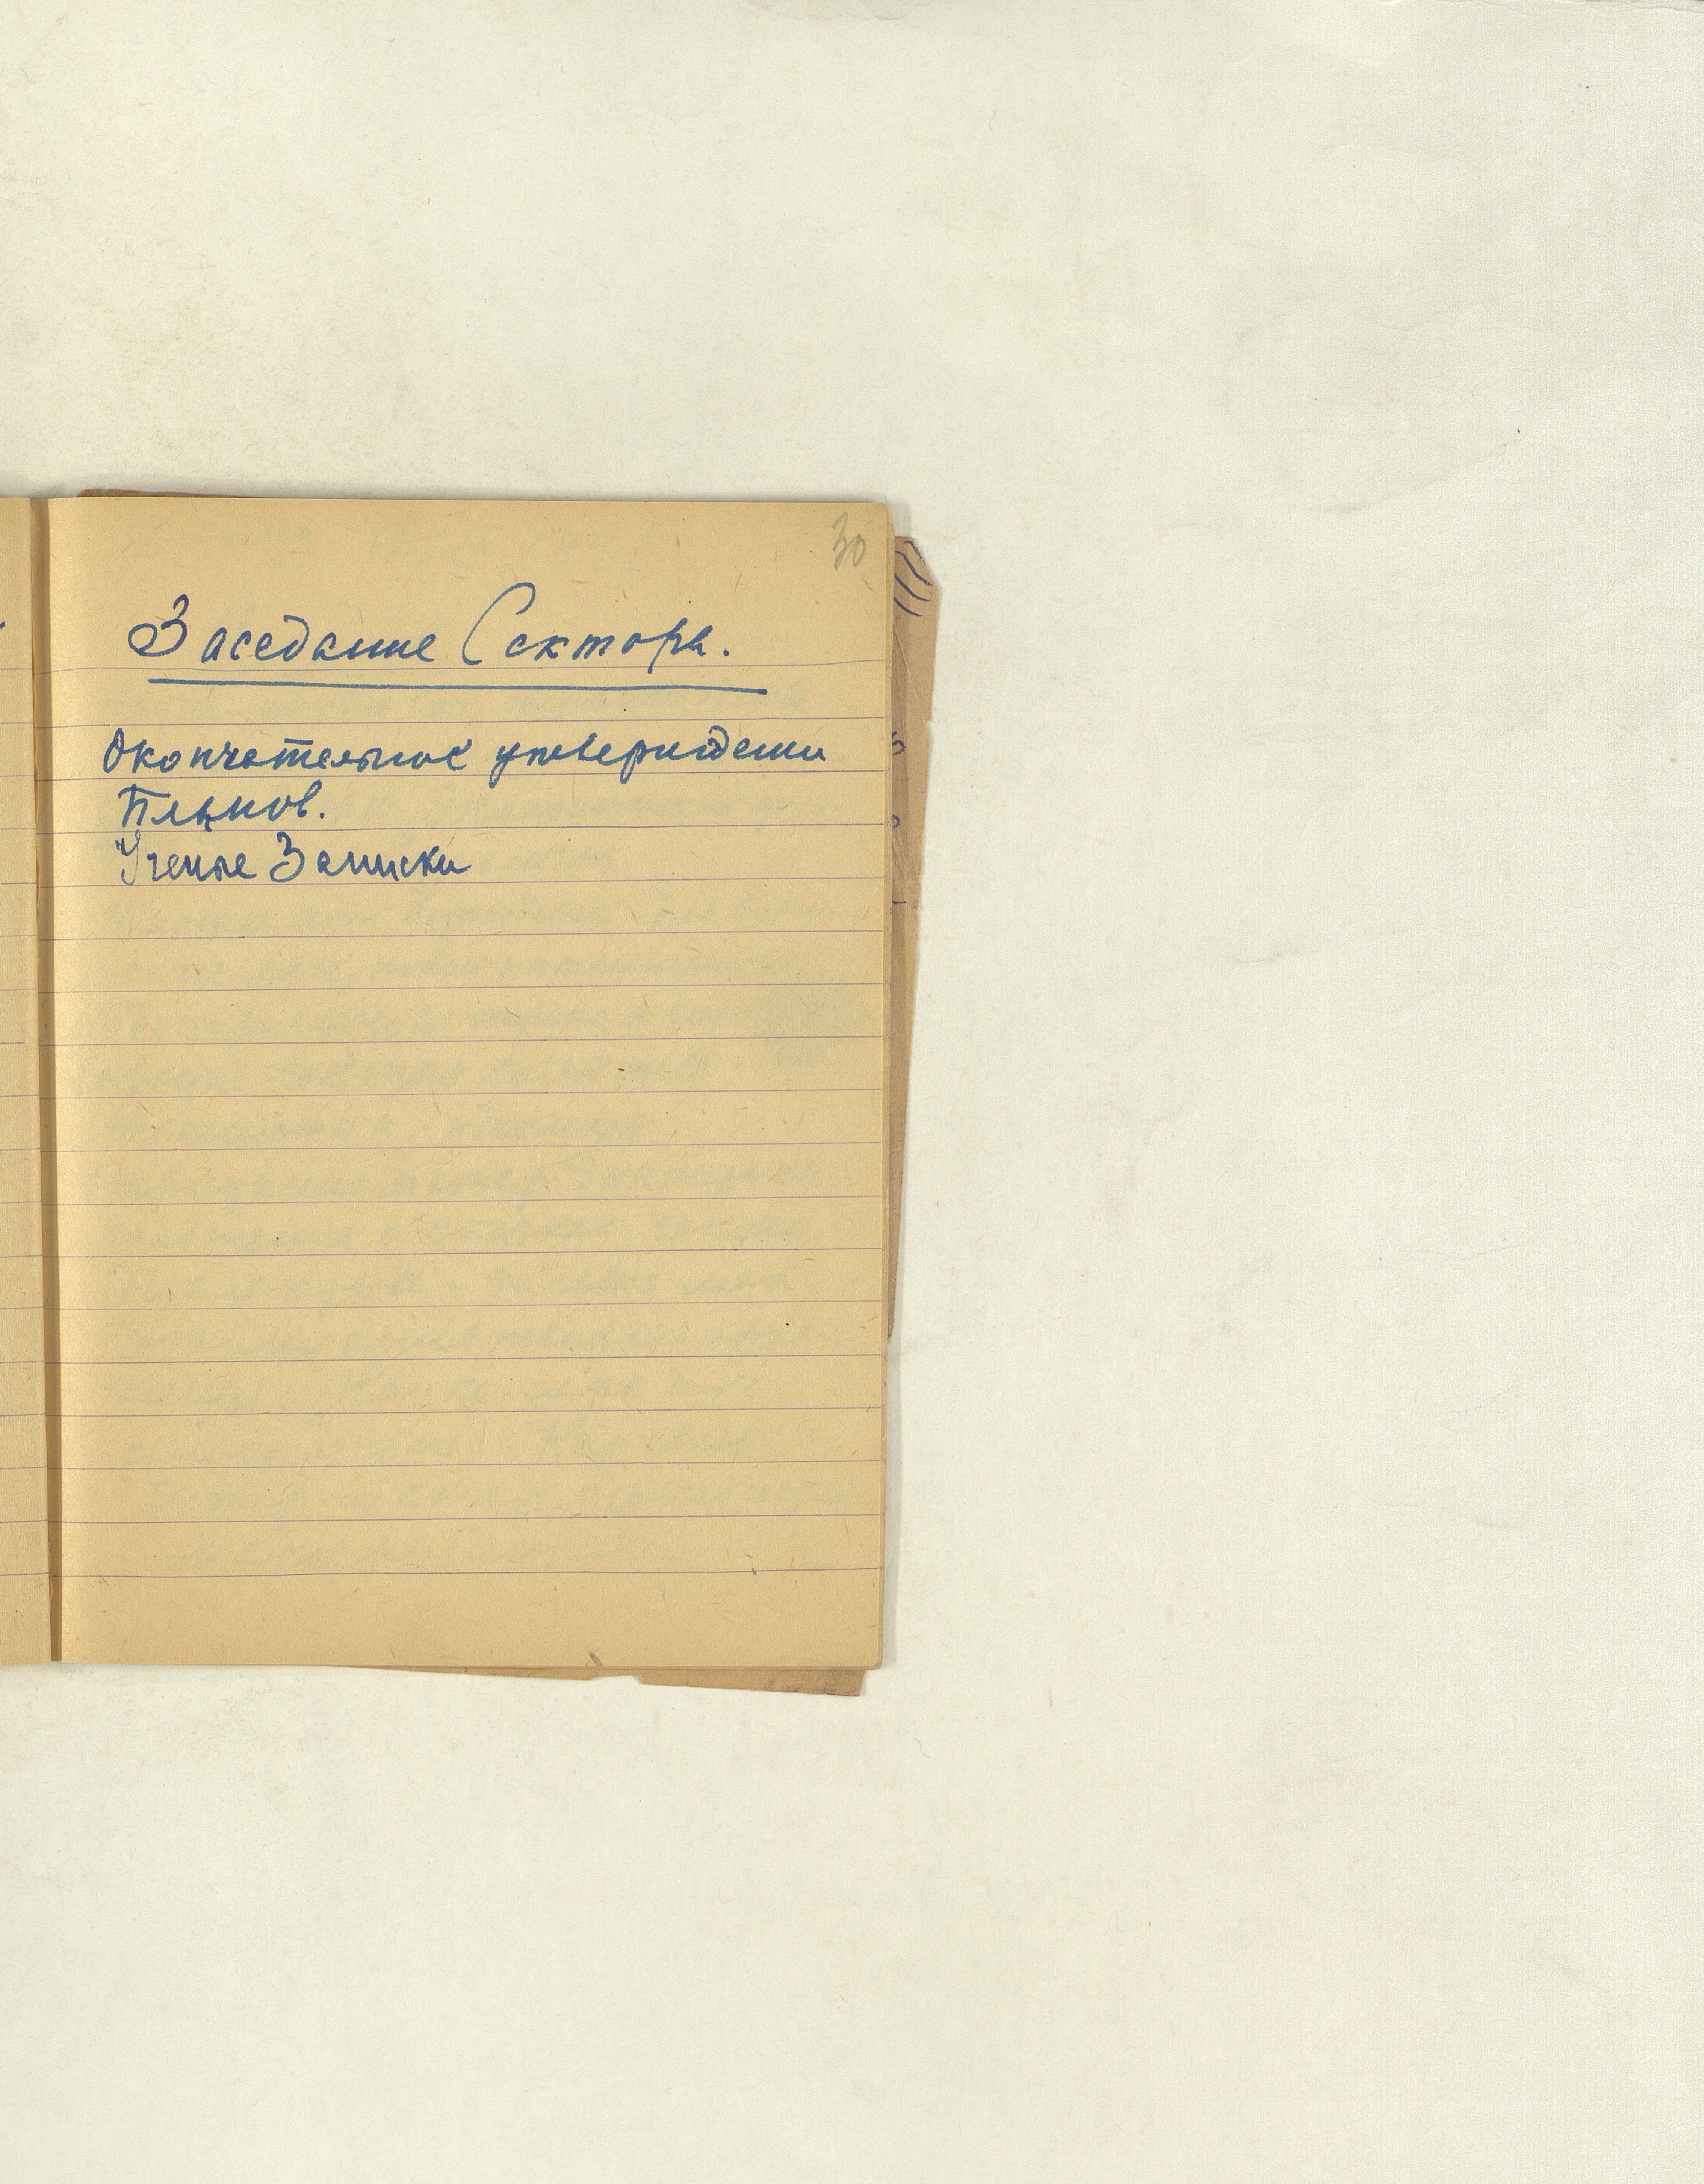 30
Заседание Сектора.
Окончательное утверждени
Планов.
Ученые Записки